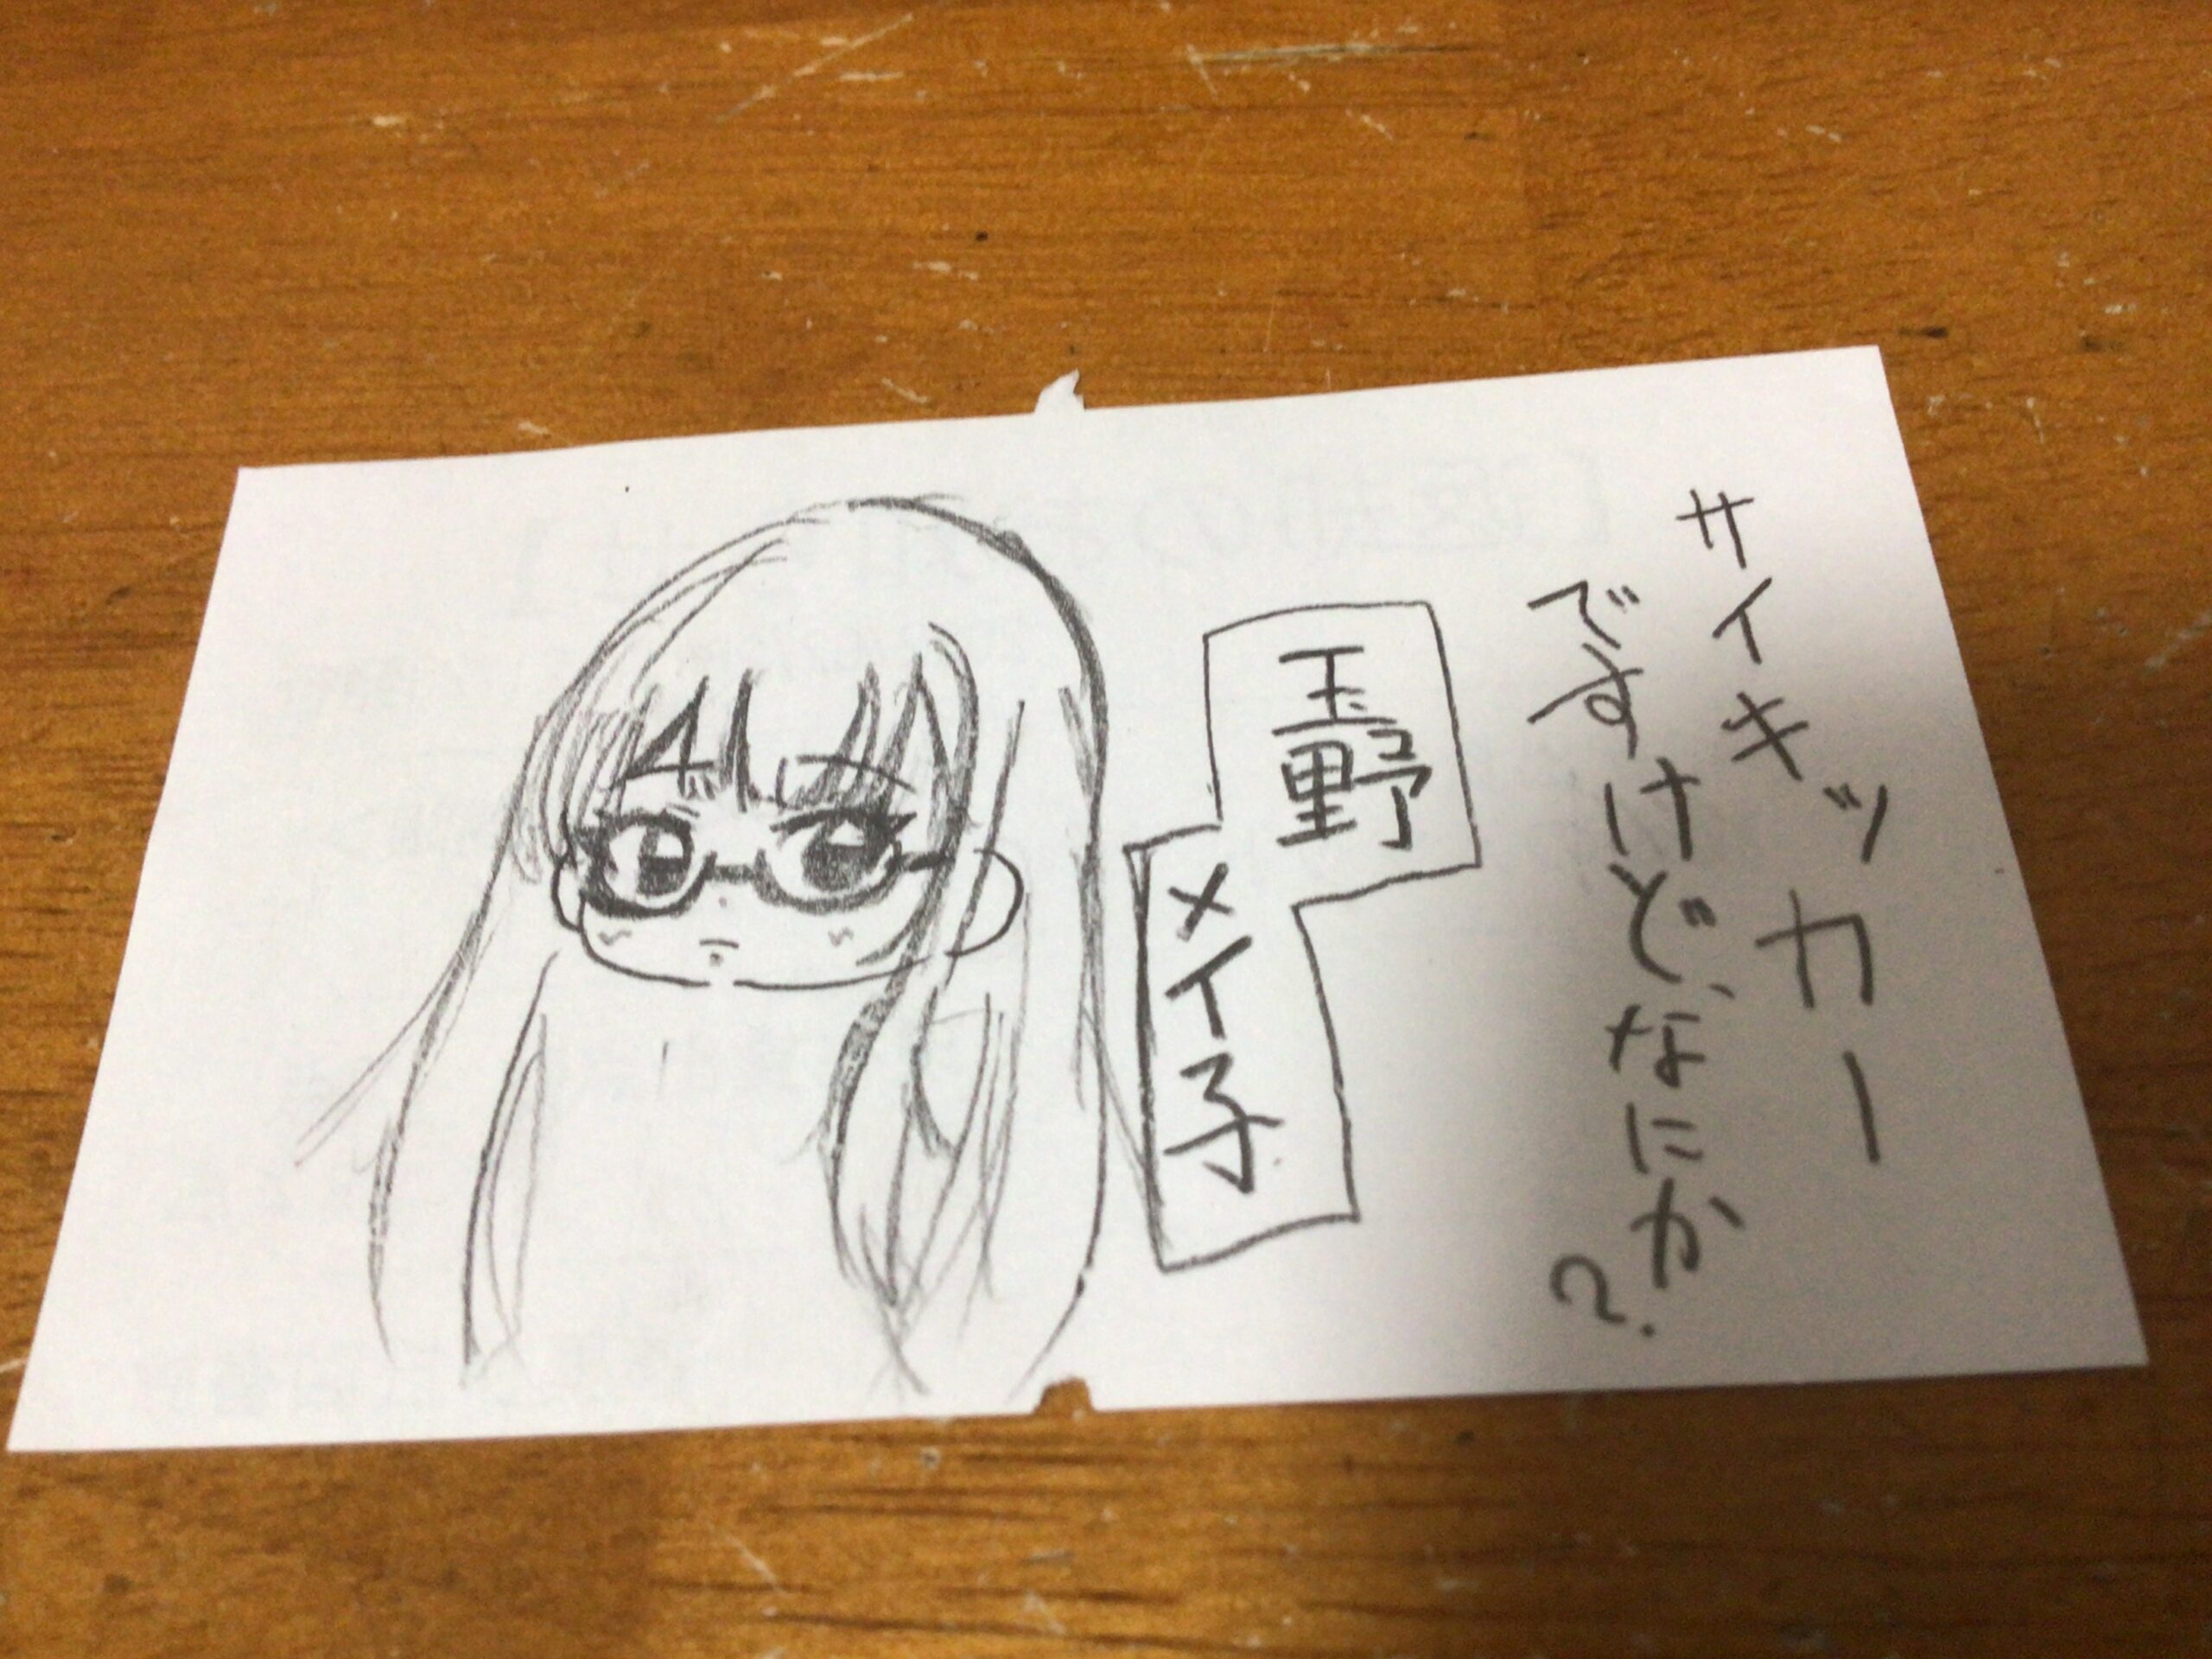 サイキッカー
ですけど、なにか?
玉野
メイ子